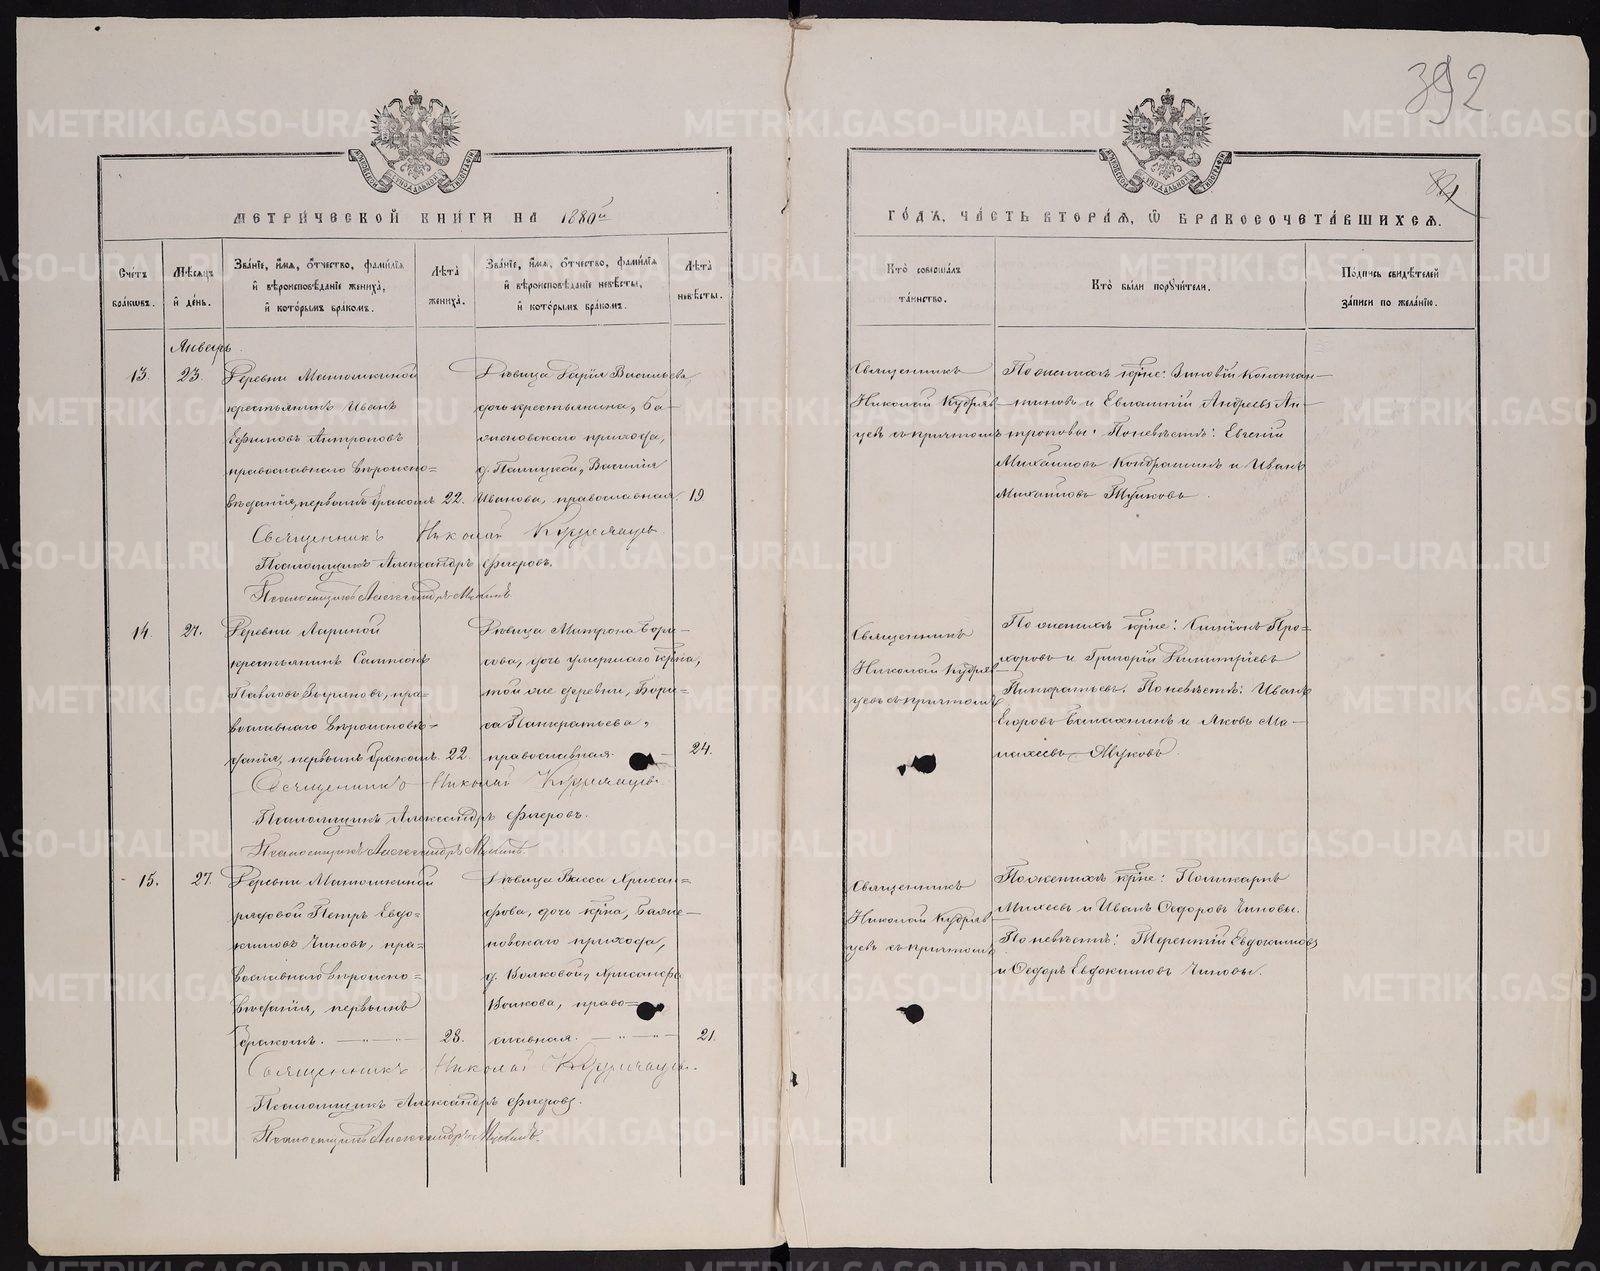 392
МЕТРИ́ЧЕСКОЙ КНИ́ГИ НА 1880й
ГО́ДЪ, ЧА́СТЬ ВТОРА́Я, Ѽ БРАКОСОЧЕТА́ВШИХСЯ.
Сче́тъ бра́ковъ.
Мѣ́сяцъ и́ де́нь.
Зва́нїе, и́мѧ, ѻ́тчество, фами́лїѧ и́ вѣроисповѣ́данїе жениха̀, и́ кото́рымъ бра́комъ.
Лѣ́та жениха̀.
Зва́нїе, и́мѧ, ѻ́тчество, фами́лїѧ и́ вѣроисповѣ́данїе невѣ́сты, и́ кото́рымъ бра́комъ.
Лѣ́та невѣ́сты.
Кто̀ соверша́лъ та́инство.
Кто̀ бы́ли пору́чители.
По́дпись свидѣ́телей за́писи по жела́нїю.
Январь.
13.
23.
Деревни Матюшкиной
крестьянинъ Иванъ
Ефимовъ Антроповъ
православнаго вѣроиспо=
вѣданія, первымъ бракомъ
22.
Дѣвица Дарія Васильева,
дочь крестьянина, Ба-
женовскаго прихода,
д. Палицкой, Василія
Иванова, православная
19.
Священникъ
Николай Кудряв-
цевъ съ причтомъ
По женихѣ кр̃не: Зиновій Констан-
тиновъ и Евлампій Андреевъ Ан-
троповы. По невѣстѣ: Евгеній
Михаиловъ Кондрашинъ и Иванъ
Михаиловъ
Священникъ Николай Кудрявцевъ.
Псаломщикъ Александръ Фигеровъ.
Псаломщикъ Александръ
14.
27.
Деревни Лариной
крестьянинъ Сампсонъ
Павловъ Зыряновъ, пра-
вославнаго вѣроисповѣ-
данія, первымъ бракомъ.
22.
Дѣвица Матрона Бори-
сова, дочь умершаго кр̃на,
той же деревни, Бори-
са Панкратьева,
православная.
24.
Священникъ
Николай Кудряв-
цевъ съ причтомъ
По женихѣ кр̃не: Симеонъ Про-
хоровъ и Григорій Димитріевъ
Панкратьевъ. По невѣстѣ: Иванъ
Егоровъ Балахнинъ и Яковъ Ма-
лахеевъ
Священникъ Николай Кудрявцевъ.
Псаломщикъ Александръ Фигеровъ.
Псаломщикъ Александръ
15.
27.
Деревни Матюшкиной
рядовой Петръ Евдо=
кимовъ Чиновъ, пра=
вославнаго вѣроиспо=
вѣданія, первымъ
бракомъ.
28.
Дѣвица Васса Хрисан=
фова, дочь кр̃на, Баже-
новскаго прихода,
д. Волковой, Хрисанфа
Волкова, право=
славная.
21.
Священникъ
Николай Кудряв-
цевъ съ причтомъ
По женихѣ кр̃не: Поликарпъ
Михеевъ и Иванъ Ѳедоровъ Чиновы.
По невѣстѣ: Терентій Евдокимовъ
и Ѳедоръ Евдокимовъ Чиновы.
Священникъ Николай Кудрявцевъ.
Псаломщикъ Александръ Фигеровъ.
Псаломщикъ Александръ
METRIKI.GASO-URAL.RU